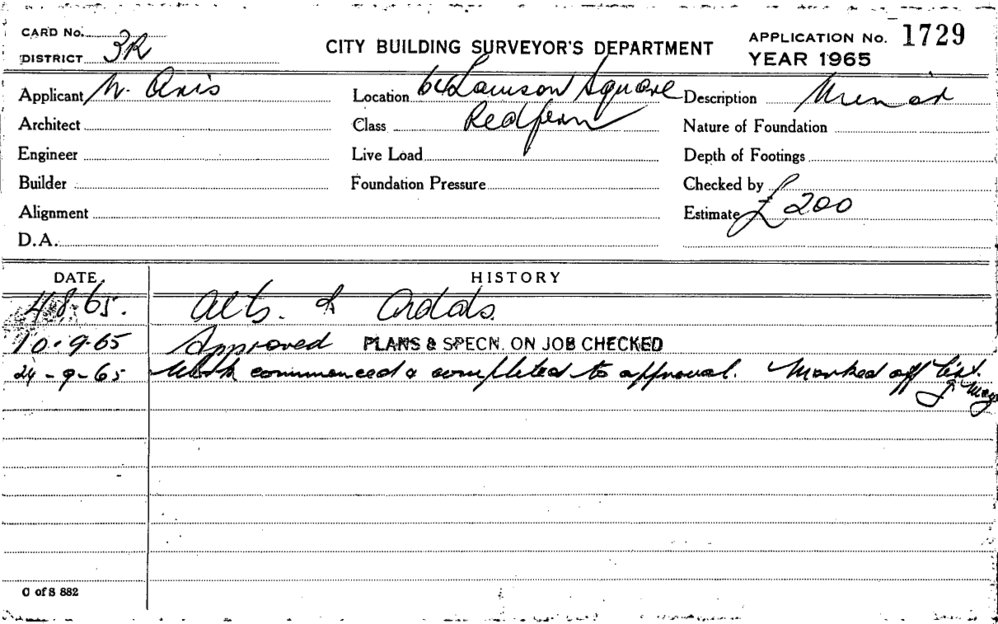 CARD No.
DISTRICT 3R
CITY BUILDING SURVEYOR'S DEPARTMENT
APPLICATION No. 1729
YEAR 1965
Applicant N. Anis
Location 64 Lawson Square
Redfern
Description
Architect
Class
Nature of Foundation
Engineer
Live Load
Depth of Footings
Builder
Foundation Pressure
Checked by
Alignment
Estimate £200
D.A.
DATE
HISTORY
4.8.65. Alts. & Addds.
10.9.65 Approved PLANS & SPECN. ON JOB CHECKED
24-9-65 Work commenced & completed to approval. Marked off list.
C of S 882